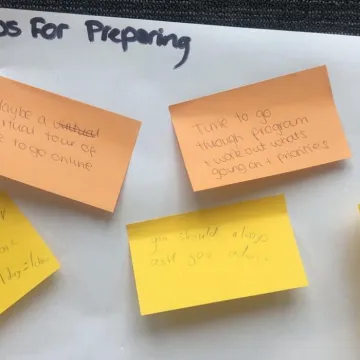 ps For Preparing
aybe a virtual
irtual tour of
e to go online
Time to go
through program
+ work out whats
going on + priorities
you should always
ask